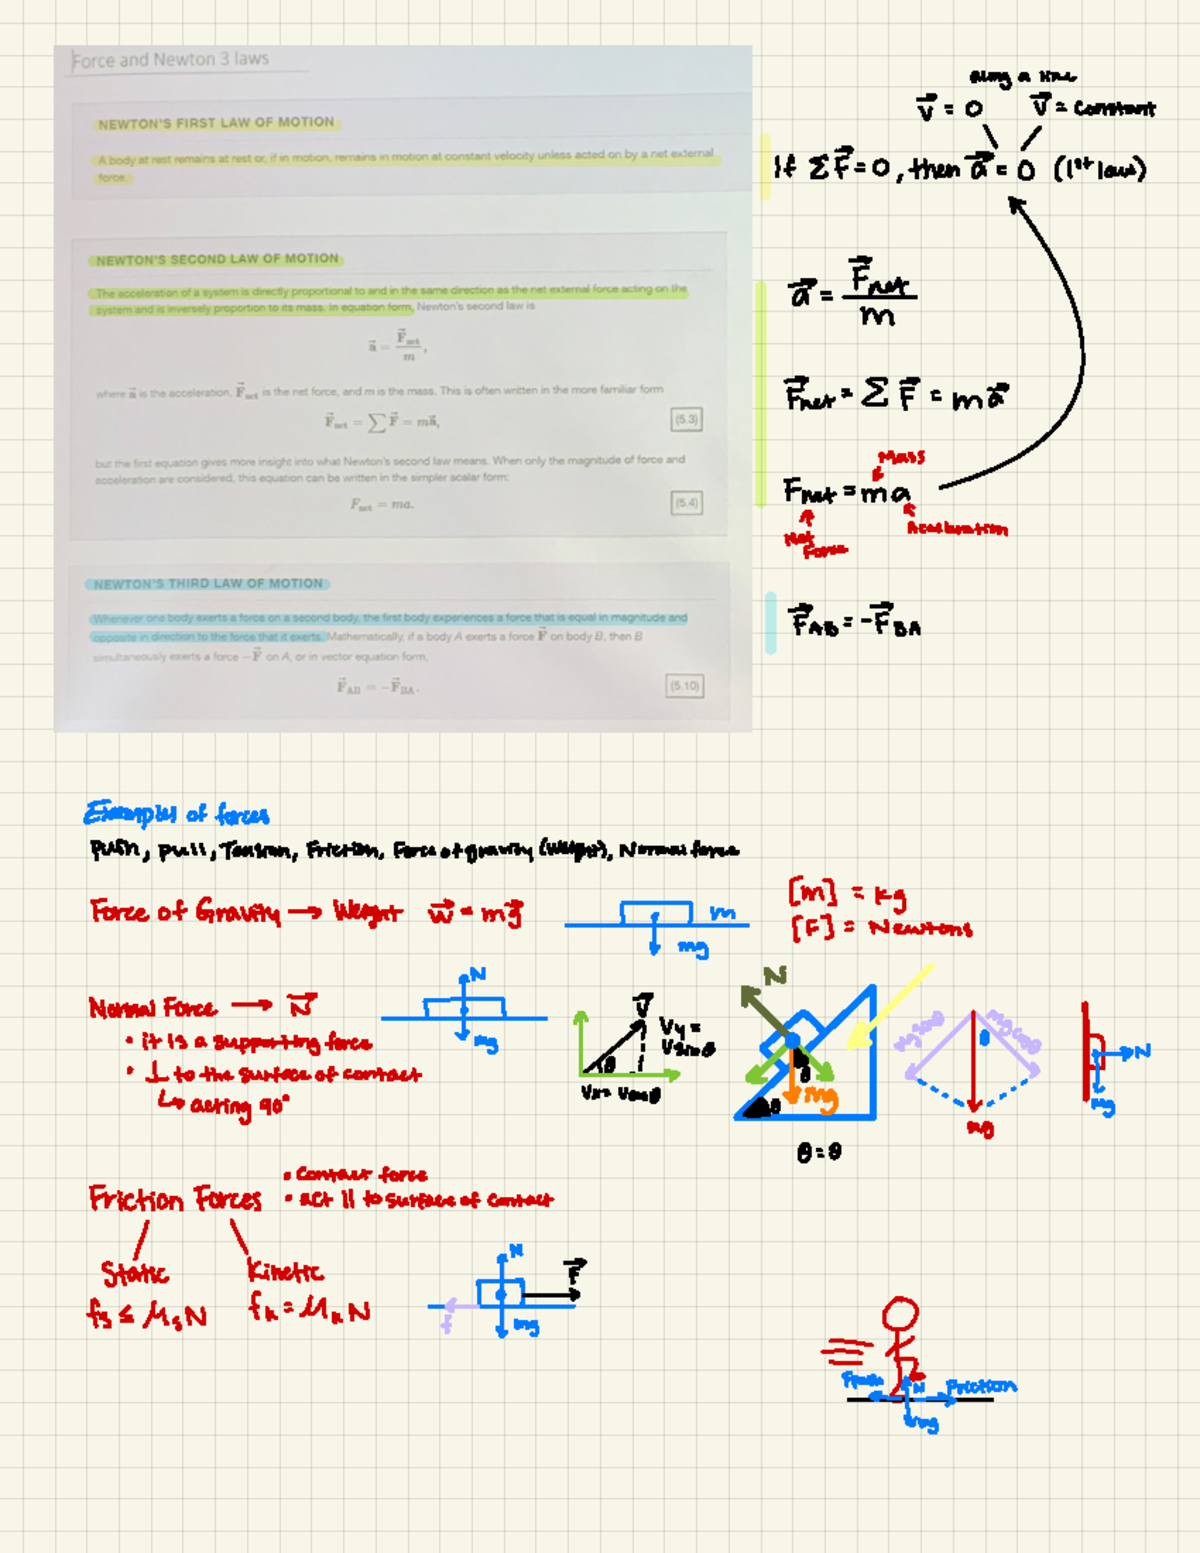 Force and Newton 3 laws
NEWTON'S FIRST LAW OF MOTION
A body at rest remains at rest or, if in motion, remains in motion at constant velocity unless acted on by a net external
force.
NEWTON'S SECOND LAW OF MOTION
The acceleration of a system is directly proportional to and in the same direction as the net external force acting on the
system and is inversely proportion to its mass. In equation form, Newton's second law is
a⃗ = F⃗net / m,
where a⃗ is the acceleration, F⃗net is the net force, and m is the mass. This is often written in the more familiar form
F⃗net = ∑ F⃗ = ma⃗, (5.3)
but the first equation gives more insight into what Newton's second law means. When only the magnitude of force and
acceleration are considered, this equation can be written in the simpler scalar form:
Fnet = ma. (5.4)
NEWTON'S THIRD LAW OF MOTION
Whenever one body exerts a force on a second body, the first body experiences a force that is equal in magnitude and
opposite in direction to the force that it exerts. Mathematically, if a body A exerts a force F⃗ on body B, then B
simultaneously exerts a force −F⃗ on A, or in vector equation form,
F⃗AB = −F⃗BA. (5.10)
along a line
v⃗ = 0 v⃗ = constant
If ΣF⃗ = 0, then a⃗ = 0 (1st law)
a⃗ = F⃗net / m
F⃗net = Σ F⃗ = ma⃗
Mass
Fnet = ma
Net Force
Acceleration
F⃗AB = -F⃗BA
Examples of forces
Push, Pull, Tension, Friction, Force of gravity (weight), Normal force
Force of Gravity → Weight w⃗ = mg⃗
m
mg
[m] = kg
[F] = Newtons
Normal Force → N⃗
• it is a supporting force
• ⊥ to the surface of contact
↳ acting 90°
N
mg
v⃗
θ
Vy = Vsinθ
Vx = Vcosθ
N
θ
mg
θ
θ = θ
mgsinθ
mgcosθ
θ
mg
N
mg
Friction Forces
• Contact force
• act || to surface of contact
Static
fs ≤ μsN
Kinetic
fk = μkN
N
F⃗
f
mg
N
Friction
mg